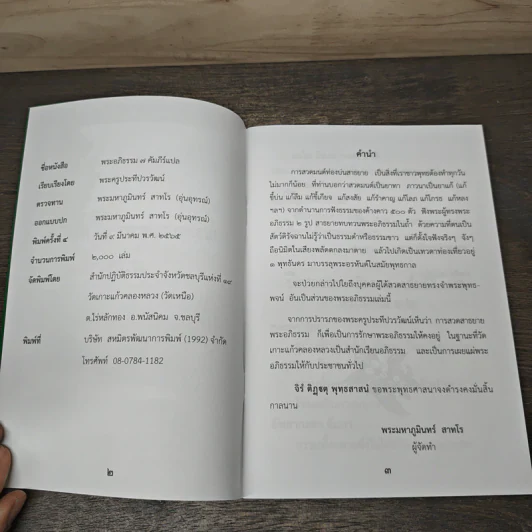 ชื่อหนังสือ พระอภิธรรม ๗ คัมภีร์แปล
เรียบเรียงโดย พระครูประทีปวรวัฒน์
ตรวจทาน พระมหาภูมินทร์ สาทโร (อุ่นอุทรณ์)
ออกแบบปก พระมหาภูมินทร์ สาทโร (อุ่นอุทรณ์)
พิมพ์ครั้งที่ ๔ วันที่ ๙ มีนาคม พ.ศ. ๒๕๖๕
จำนวนการพิมพ์ ๒,๐๐๐ เล่ม
จัดพิมพ์โดย สำนักปฏิบัติธรรมประจำจังหวัดชลบุรีแห่งที่ ๑๙
วัดเกาะแก้วคลองหลวง (วัดเหนือ)
ต.ไร่หลักทอง อ.พนัสนิคม จ.ชลบุรี
พิมพ์ที่ บริษัท สหมิตรพัฒนาการพิมพ์ (1992) จำกัด
โทรศัพท์ 08-0784-1182
๒
คำนำ
การสวดมนต์ท่องบ่นสาธยาย เป็นสิ่งที่เราชาวพุทธต้องทำทุกวัน
ไม่มากก็น้อย ที่ท่านบอกว่าสวดมนต์เป็นยาทา ภาวนาเป็นยาแก้ (แก้
ขี้บ่น แก้ลืม แก้ขี้เกียจ แก้สงสัย แก้รำคาญ แก้โลภ แก้โกรธ แก้หลง
ฯลฯ) จากตำนานการฟังธรรมของค้างคาว ๕๐๐ ตัว ฟังพระผู้ทรงพระ
อภิธรรม ๒ รูป สาธยายทบทวนพระอภิธรรมในถ้ำ ด้วยความที่ตนเป็น
สัตว์ดิรัจฉานไม่รู้ว่าเป็นธรรมดำหรือธรรมขาว แต่ก็ตั้งใจฟังจริงๆ จังๆ
ถือนิมิตในเสียงพลัดตกลงมาตาย แล้วไปเกิดเป็นเทวดาท่องเที่ยวอยู่
๑ พุทธันดร มาบรรลุพระอรหันต์ในสมัยพุทธกาล
จะป่วยกล่าวไปไยถึงบุคคลผู้ได้สวดสาธยายทรงจำพระพุทธ-
พจน์ อันเป็นส่วนของพระอภิธรรมเล่มนี้
จากการปรารภของพระครูประทีปวรวัฒน์เห็นว่า การสวดสาธยาย
พระอภิธรรม ก็เพื่อเป็นการรักษาพระอภิธรรมให้คงอยู่ ในฐานะที่วัด
เกาะแก้วคลองหลวงเป็นสำนักเรียนอภิธรรม และเป็นการเผยแผ่พระ
อภิธรรมให้กับประชาชนทั่วไป
จิรํ ติฏฺฐตุ พุทธสาสนํ ขอพระพุทธศาสนาจงดำรงคงมั่นสิ้น
กาลนาน
พระมหาภูมินทร์ สาทโร
ผู้จัดทำ
๓